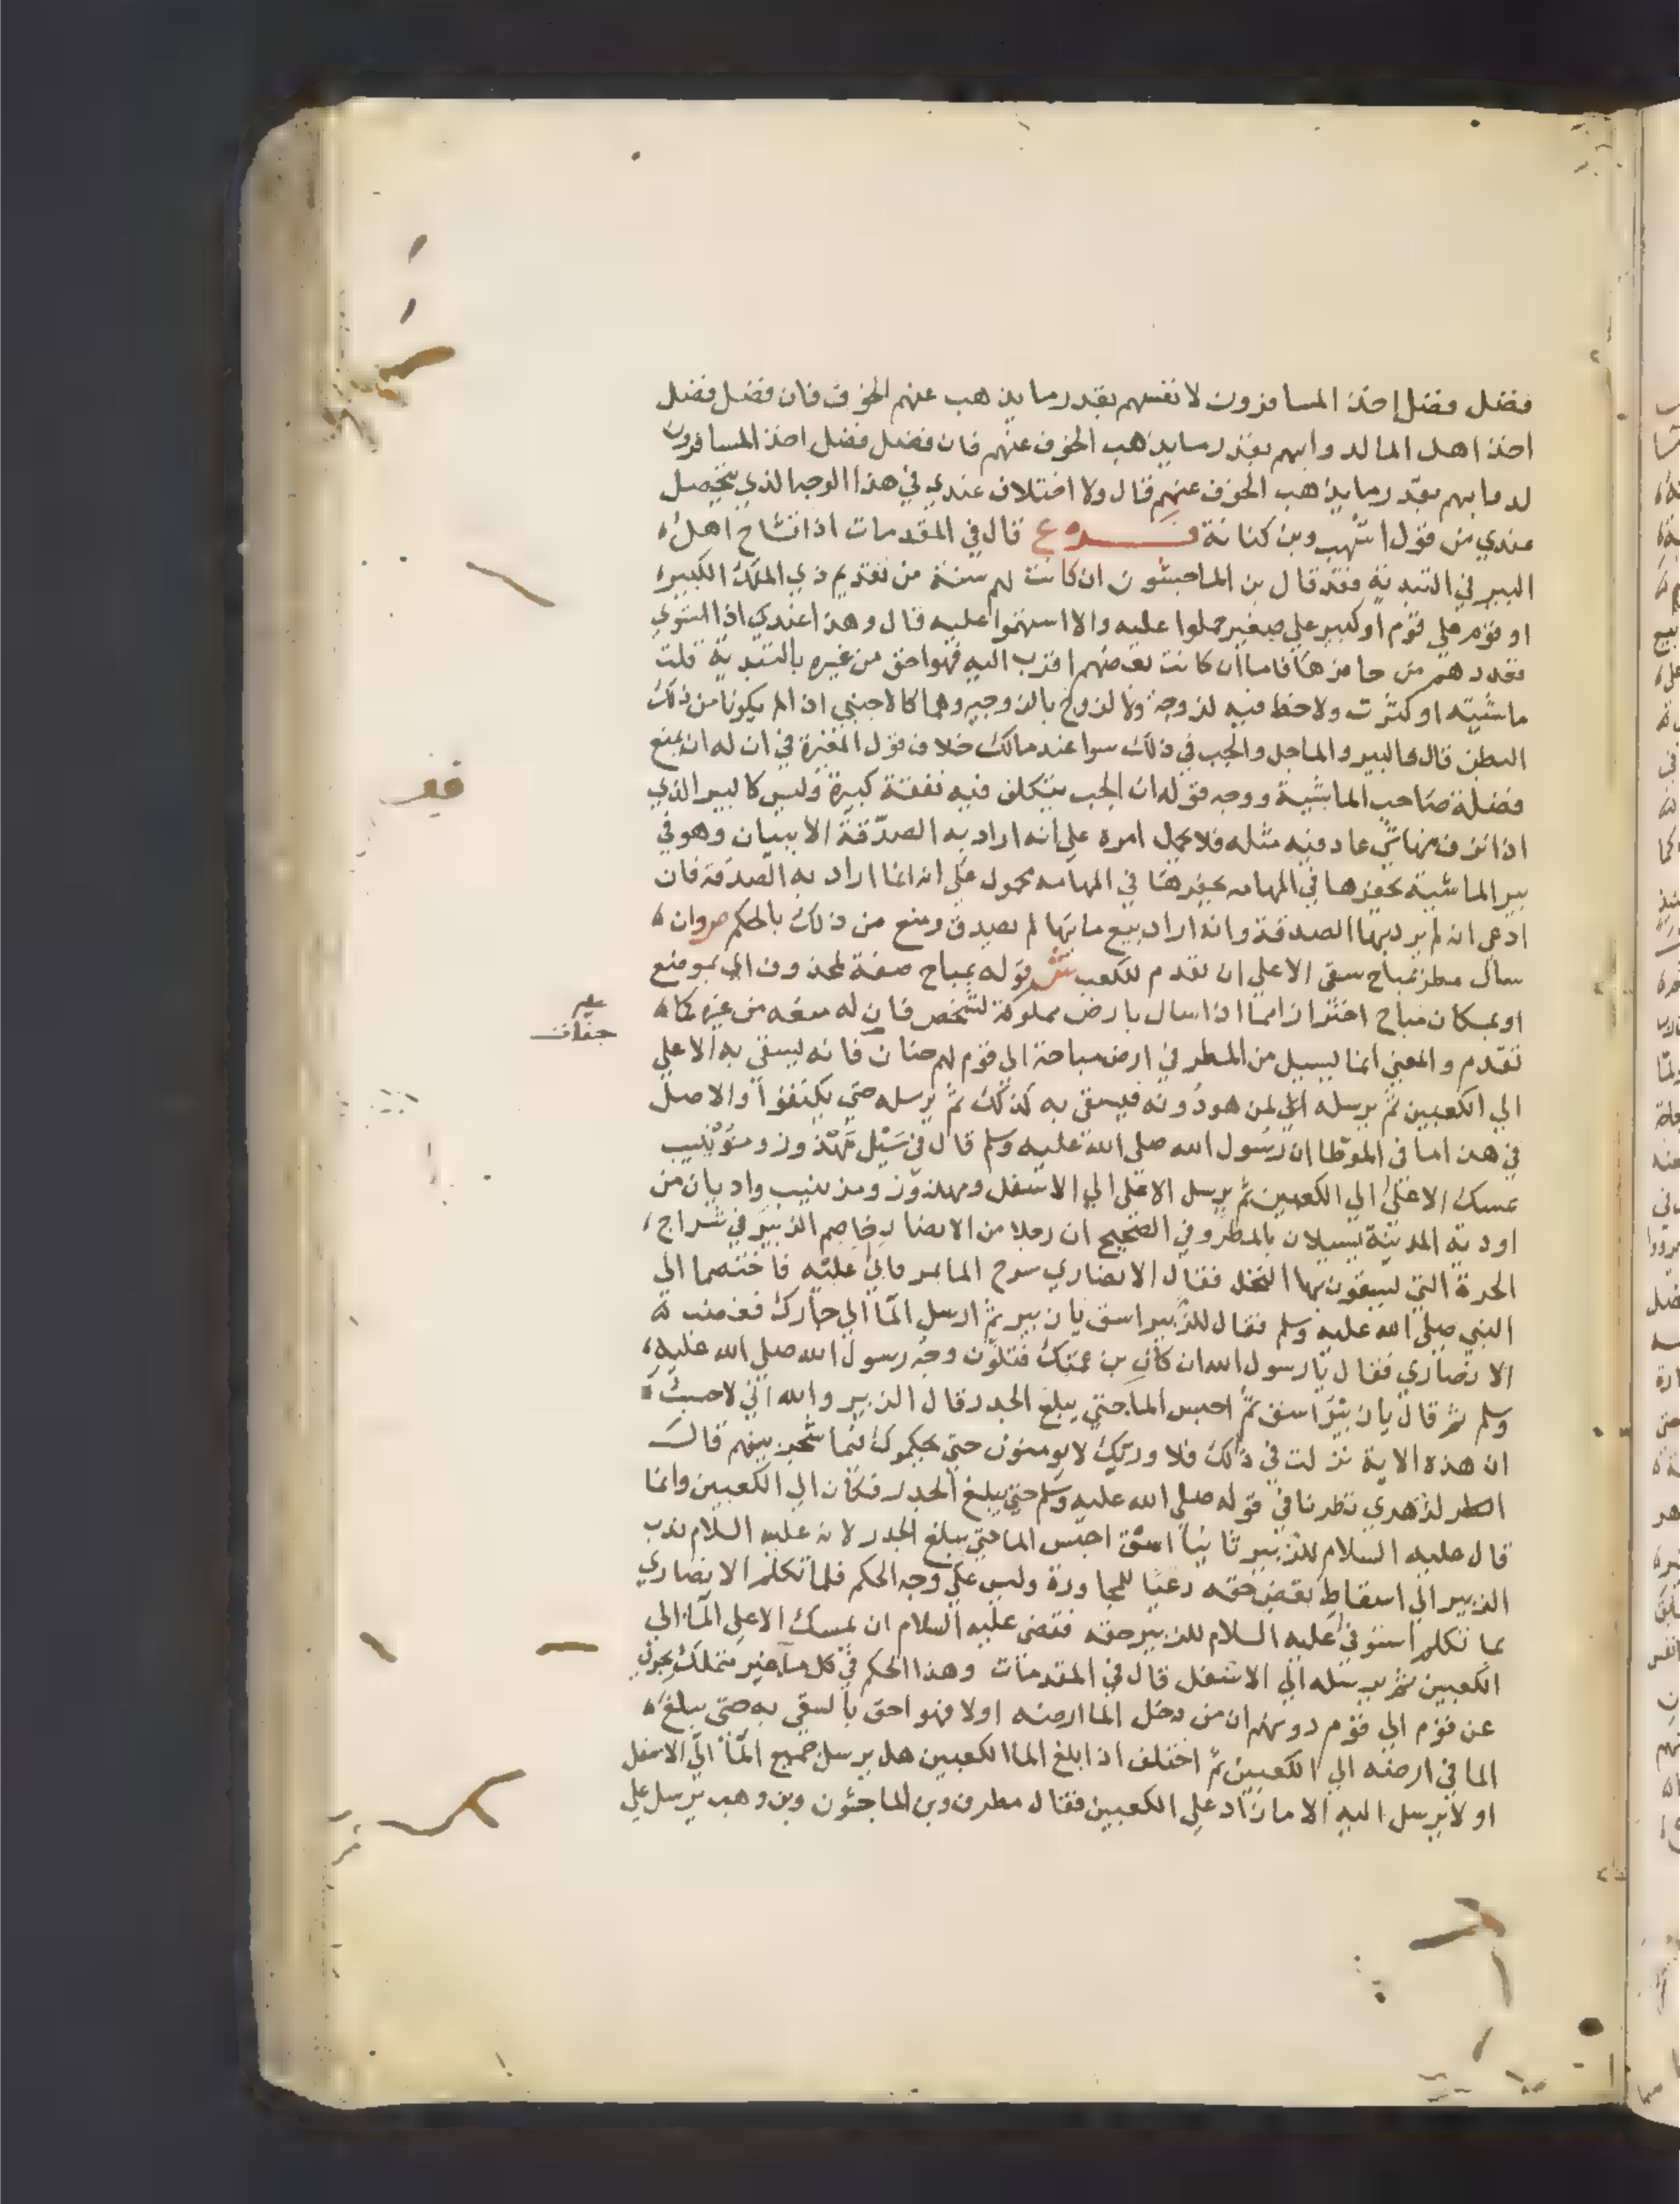 فضل فضل اخذ المسافرون لانفسهم بقدر ما يذهب عنهم الخوف فان فضل فضل
اخذ اهل الما لدوابهم بقدر ما يذهب الخوف عنهم فان فضل فضل اخذ المسافرون
لدوابهم بقدر ما يذهب الخوف عنهم قال ولا اختلاف عندي في هذا الوجه الذي يتحصل
عندي من قول اشهب وبن كنانة فـــرع قال في المقدمات اذا تشاح اهل
البير في التبدية فقد قال بن الماجشون ان كانت لهم سنة من تقديم ذي الملك الكبير
او قوم علي قوم او كبير علي صغير حملوا عليه والا استهموا عليه قال وهذا عندي اذا استوي
قعددهم من حافرها فاما ان كانت بعضهم اقرب اليه فهو احق من غيره بالتبدية قلت
ماشيته او كثرت ولا حظ فيه لزوجة ولا لزوج بالزوجيه وهما كالاجنبي اذا لم يكونا من ذلك
البطن قال والبير والماجل والجب في ذلك سوا عند مالك خلاف قول المغيرة في ان له ان يمنع
فضلة صاحب الماشية ووجه قوله ان الجب يتكلف فيه نفقة كبيرة وليس كالبير الذي
اذا انزف منها شي عاد فيه مثله فلا يحمل امره علي انه اراد به الصدقة الا ببيان وهو في
بير الماشية يحفرها في المهامه يحفرها في المهامه محمول علي انه انما اراد به الصدقة فان
ادعي انه لم يرد بها الصدقة وانه اراد بيع مايها لم يصدق ومنع من ذلك بالحكم ص وان
سال مطر بمباح سقي الاعلي ان تقدم للكعب ش قوله بمباح صفة لمحذوف اي بموضع
او بمكان مباح احترازا مما اذا سال بارض مملوكة لشخص فان له منعه من غيره كما
تقدم والمعني انما يسيل من المطر في ارض مباحة الي قوم لهم جنان فانه يسقي به الاعلي
الي الكعبين ثم يرسله الي لمن هو دونه فيسقي به كذلك ثم يرسله حتي يكتفوا والاصل
في هذا ما في الموطا ان رسول الله صلي الله عليه وسلم قال في سيل مهزور ومذينيب
يمسك الاعلي الي الكعبين ثم يرسل الاعلي الي الاسفل ومهزوز ومذينيب واديان من
اودية المدينة يسيلان بالمطر وفي الصحيح ان رجلا من الانصار خاصم الزبير في شراج
الحرة التي يسقون بها النخل فقال الانصاري سرح الما يمر فابي عليه فاختصما الي
النبي صلي الله عليه وسلم فقال للزبير اسق يا زبير ثم ارسل الما الي جارك فغضب
الانصاري فقال يا رسول الله ان كان بن عمتك فتلون وجه رسول الله صلي الله عليه
وسلم ثم قال يا زبير اسق ثم احبس الما حتي يبلغ الجدر قال الزبير والله اني لاحسب
ان هذه الاية نزلت في ذلك فلا وربك لا يومنون حتي يحكموك فيما شجر بينهم قال
الزهري نظرنا في قوله صلي الله عليه وسلم حتي يبلغ الجدر فكان الي الكعبين وانما
قال عليه السلام للزبير ثانيا اسق احبس الما حتي يبلغ الجدر لانه عليه السلام ندب
الزبير الي اسقاط بعض حقه رعيا للمجاورة وليس علي وجه الحكم فلما تكلم الانصاري
بما تكلم استوفي عليه السلام للزبير حقه فقضي عليه السلام ان يمسك الاعلي الما الي
الكعبين ثم يرسله الي الاسفل قال في المقدمات وهذا الحكم في كل ما غير متملك يجري
عن قوم الي قوم دونهم ان من دخل الما ارضه اولا فهو احق بالسقي به حتي يبلغ
الما في ارضه الي الكعبين ثم اختلف اذا بلغ الما الكعبين هل يرسل جميع الما الي الاسفل
او لا يرسل اليه الا ما زاد علي الكعبين فقال مطرف وبن الماجشون وبن وهب يرسل علي